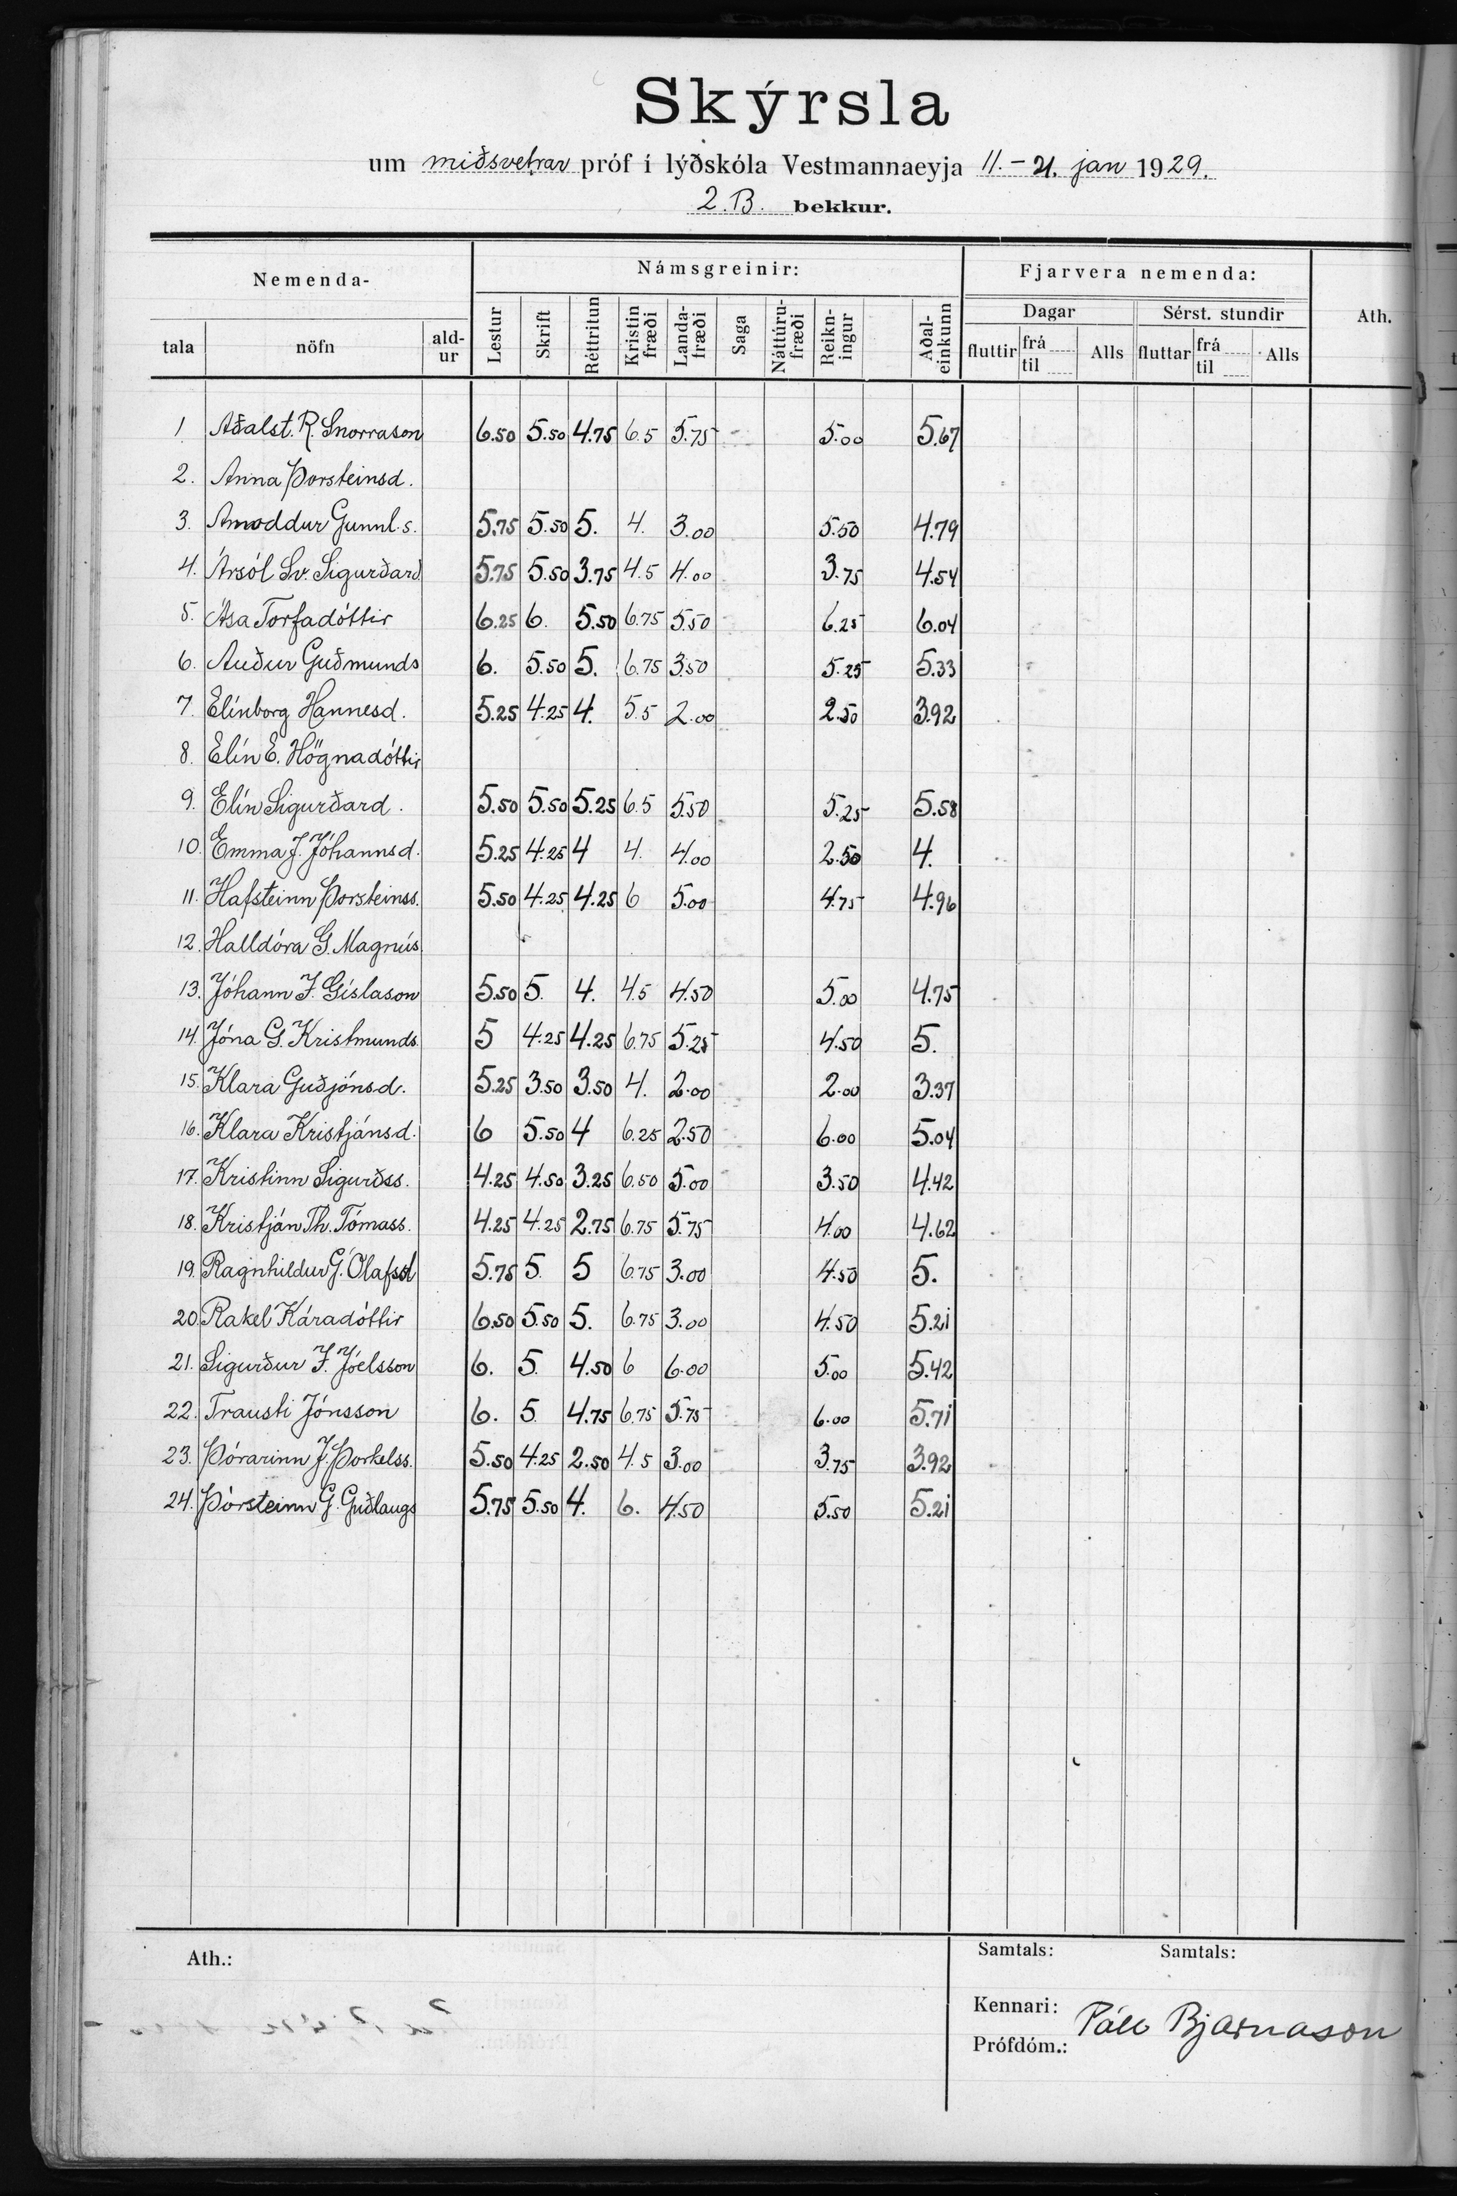 Skýrsla
um miðsvetrar próf í lýðskóla Vestmannaeyja 11.–21. jan 1929.
2.B. bekkur.
Nemenda- Námsgreinir: Fjarvera nemenda: Ath.
tala nöfn ald-ur Lestur Skrift Réttritun Kristin fræði Landa-fræði Saga Náttúru-fræði Reikn-ingur Aðal-einkunn Dagar Sérst. stundir
fluttir frá til Alls fluttar frá til Alls
1 Aðalst. R. Snorrason 6.50 5.50 4.75 6.5 5.75 5.00 5.67
2. Anna Þorsteinsd.
3. Arnoddur Gunnl.s. 5.75 5.50 5. 4. 3.00 5.50 4.79
4. Ársól Sv. Sigurðard 5.75 5.50 3.75 4.5 4.00 3.75 4.54
5. Ása Torfadóttir 6.25 6. 5.50 6.75 5.50 6.25 6.04
6. Auður Guðmunds 6. 5.50 5. 6.75 3.50 5.25 5.33
7. Elínborg Hannesd. 5.25 4.25 4. 5.5 2.00 2.50 3.92
8. Elín E. Högnadóttir
9. Elín Sigurðard. 5.50 5.50 5.25 6.5 5.50 5.25 5.58
10. Emma J. Jóhannsd. 5.25 4.25 4 4. 4.00 2.50 4.
11. Hafsteinn Þorsteinss. 5.50 4.25 4.25 6 5.00 4.75 4.96
12. Halldóra G. Magnús
13. Jóhann J. Gíslason 5.50 5. 4. 4.5 4.50 5.00 4.75
14. Jóna G. Kristmunds 5 4.25 4.25 6.75 5.25 4.50 5.
15. Klara Guðjónsd. 5.25 3.50 3.50 4. 2.00 2.00 3.37
16. Klara Kristjánsd. 6 5.50 4 6.25 2.50 6.00 5.04
17. Kristinn Sigurðss. 4.25 4.50 3.25 6.50 5.00 3.50 4.42
18. Kristján Th. Tómass. 4.25 4.25 2.75 6.75 5.75 4.00 4.62
19. Ragnhildur G. Ólafsd 5.75 5. 5 6.75 3.00 4.50 5.
20. Rakel Káradóttir 6.50 5.50 5. 6.75 3.00 4.50 5.21
21. Sigurður J. Jóelsson 6. 5. 4.50 6 6.00 5.00 5.42
22. Trausti Jónsson 6. 5. 4.75 6.75 5.75 6.00 5.71
23. Þórarinn J. Þorkelss. 5.50 4.25 2.50 4.5 3.00 3.75 3.92
24. Þórsteinn G. Guðlaugs 5.75 5.50 4. 6. 4.50 5.50 5.21
Ath.: Samtals: Samtals:
Kennari: Páll Bjarnason
Prófdóm.: